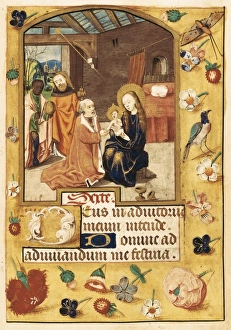 Sexte.
Deus in adiutoriu
meum intende
Domine ad
adiuuandum me festina.